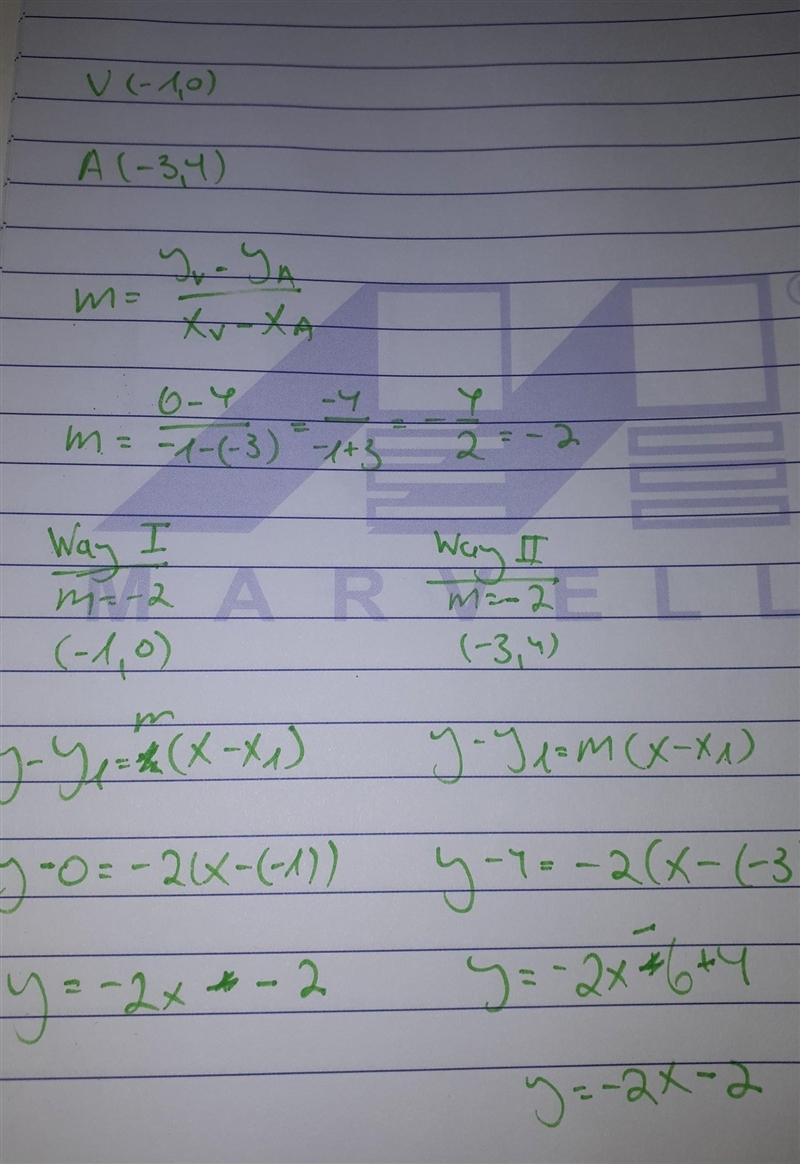 V(-1,0)
A(-3,4)
m = (y_V - y_A)/(x_V - x_A)
m = (0-4)/(-1-(-3)) = (-4)/(-1+3) = -4/2 = -2
Way I
m=-2
(-1,0)
y-y_1=m(x-x_1)
y-0=-2(x-(-1))
y=-2x-2
Way II
m=-2
(-3,4)
y-y_1=m(x-x_1)
y-4=-2(x-(-3
y=-2x-6+4
y=-2x-2
MARVELL